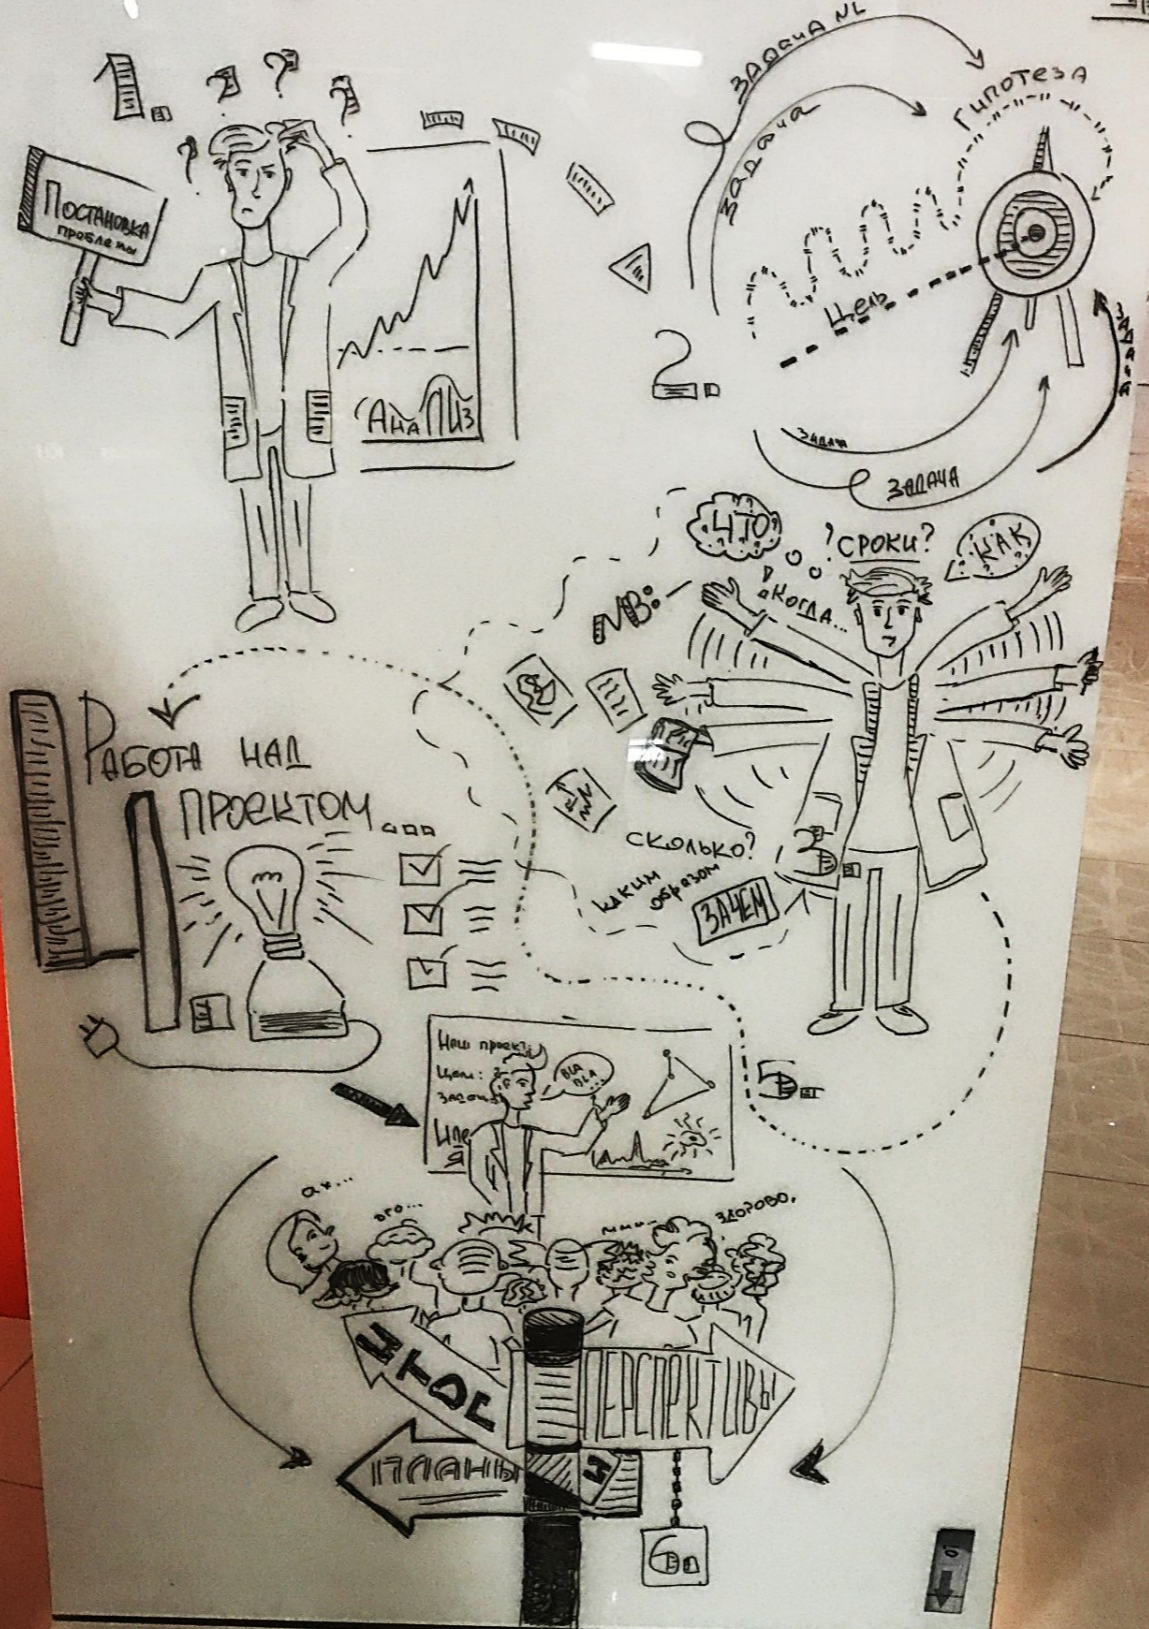 1.
?
?
?
?
Постановка
проблемы
Анализ
2.
Задача NL
задача
Гипотеза
Цель
задача
задача
задача
МВ:
Что
?Сроки?
Как
Когда...
Сколько?
каким
образом
Зачем
3.
Работа над
проектом...
5.
Наш проект:
Цели:
BLA
BLA
...
ах...
ого...
ммм...
здорово.
Итог
Перспективы
Планы
и
6.